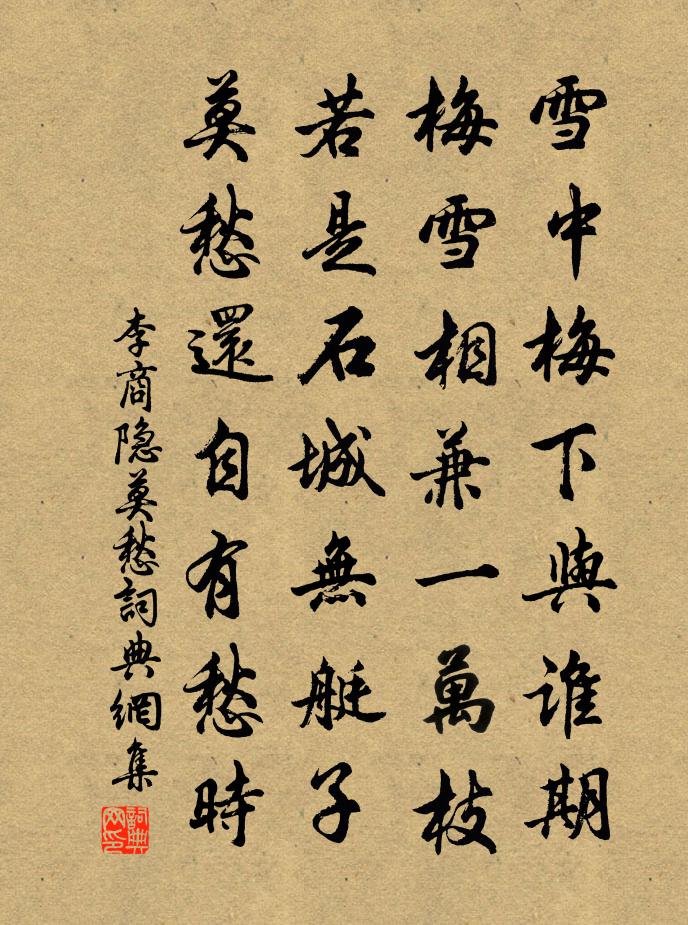 雪中梅下與谁期
梅雪相兼一萬枝
若是石城無艇子
莫愁還自有愁時
李商隐莫愁詞典網集
詞典网印